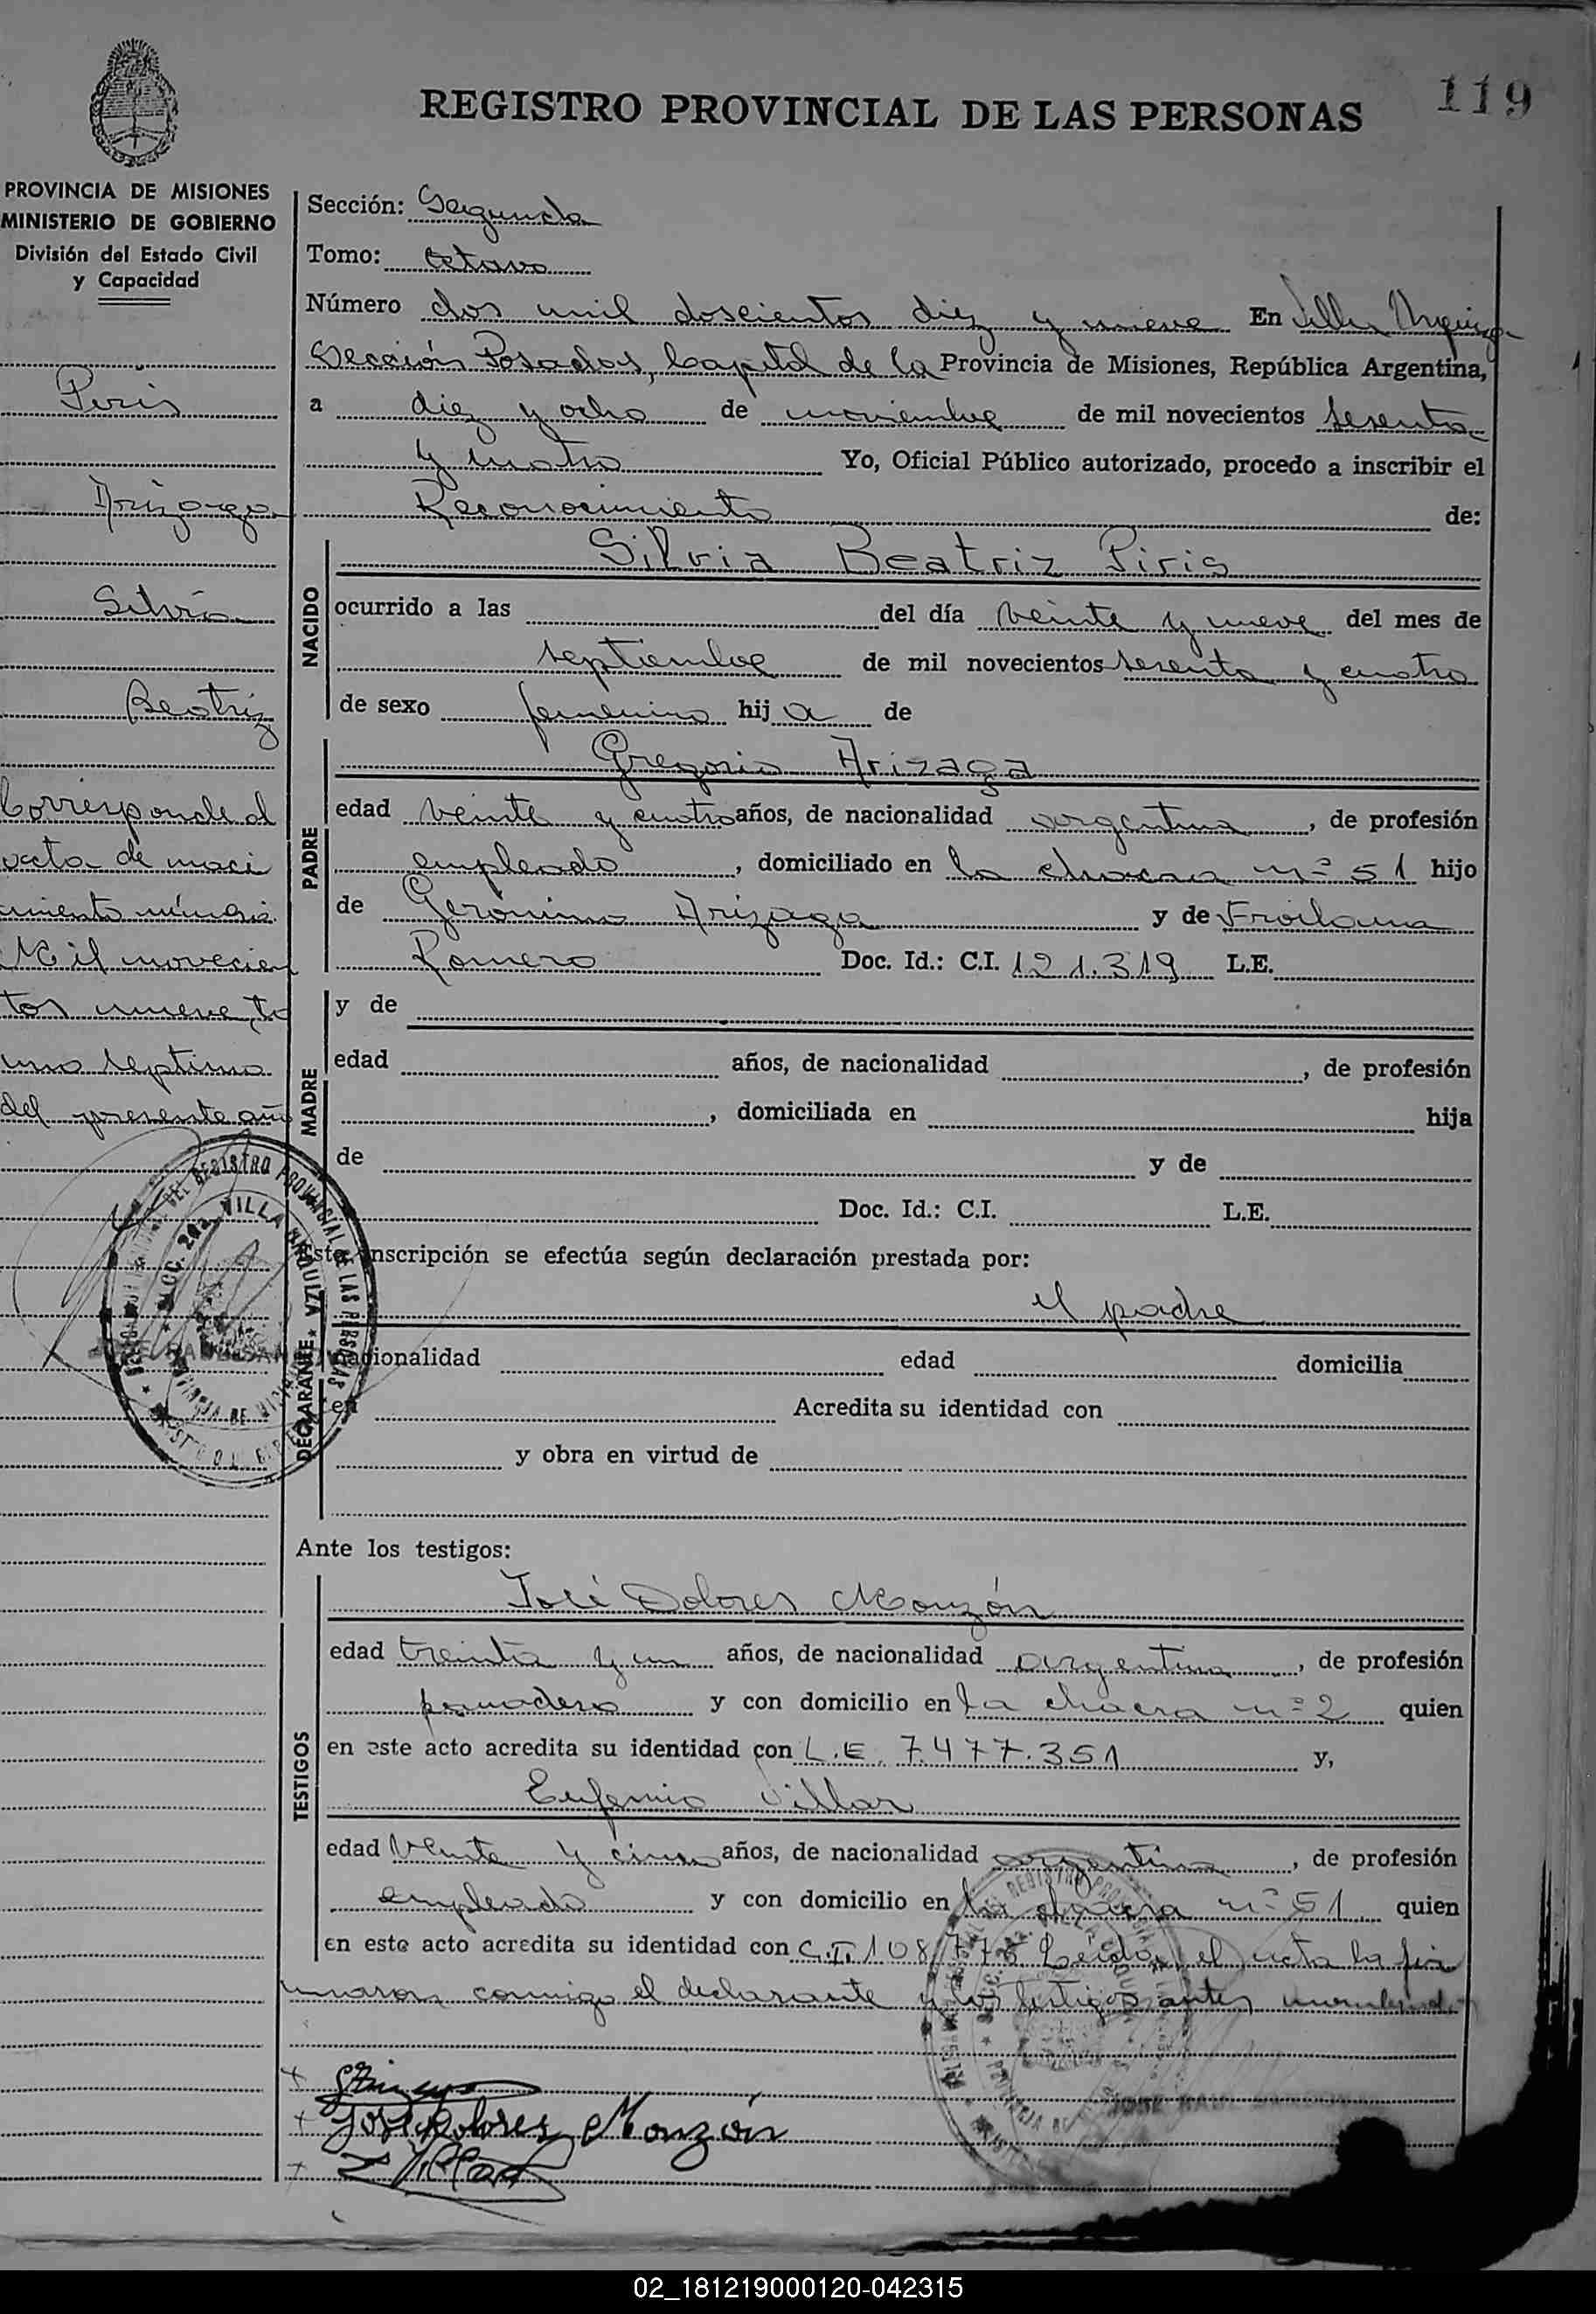 REGISTRO PROVINCIAL DE LAS PERSONAS
119
PROVINCIA DE MISIONES
MINISTERIO DE GOBIERNO
División del Estado Civil
y Capacidad
Piris
Arizaga
Silvia
Beatriz
Corresponde al
acta de naci
miento número
Mil novecien
tos nueve, to
mo septimo
del presente año
Sección: Segunda
Tomo: Octavo
Número dos mil doscientos diez y nueve En Villa Urquiza
Sección Posadas, Capital de la Provincia de Misiones, República Argentina,
a diez y ocho de noviembre de mil novecientos sesenta
y cuatro Yo, Oficial Público autorizado, procedo a inscribir el
Reconocimiento de:
NACIDO
Silvia Beatriz Piris
ocurrido a las del día veinte y nueve del mes de
septiembre de mil novecientos sesenta y cuatro
de sexo femenino hij a de
PADRE
Gregorio Arizaga
edad veinte y cuatro años, de nacionalidad argentina, de profesión
empleado, domiciliado en la chacra nº 51 hijo
de Gerónimo Arizaga y de Froilana
Romero Doc. Id.: C.I. 121.319 L.E.
MADRE
y de
edad años, de nacionalidad , de profesión
, domiciliada en hija
de y de
Doc. Id.: C.I. L.E.
DECLARANTE
Esta inscripción se efectúa según declaración prestada por:
el padre
nacionalidad edad domicilia
en Acredita su identidad con
y obra en virtud de
Ante los testigos:
TESTIGOS
José Dolores Monzón
edad treinta y un años, de nacionalidad argentina, de profesión
panadero y con domicilio en la chacra nº 2 quien
en este acto acredita su identidad con L.E. 7.477.351 y,
Eufemio Villar
edad veinte y cinco años, de nacionalidad argentina, de profesión
empleado y con domicilio en la chacra nº 51 quien
en este acto acredita su identidad con C.I. 108.775 Leída el acta la fir
maron conmigo el declarante y los testigos antes
José Dolores Monzón
E Villar
VILLA URQUIZA
02_181219000120-042315